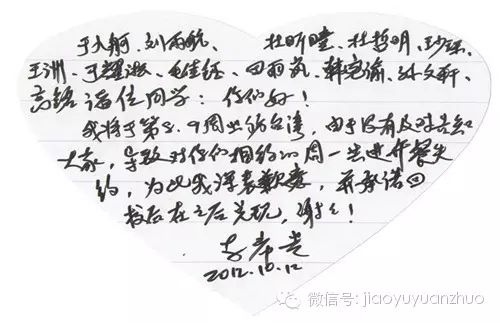 于久舸、刘雨航、 杜昕曈、杜哲明、
王洲、于耀淞、田雨岚、韩宽渝、孙文轩、
高铭诸位同学：你们好！
我将于第8、9周出访台湾，由于没有及时告知
大家，导致对你们相约的周一共进午餐失
约，为此我深表歉意，并承诺回
校后在之后兑现，谢谢！
李希贵
2012.10.12
微信号: jiaoyuyuanzhuo